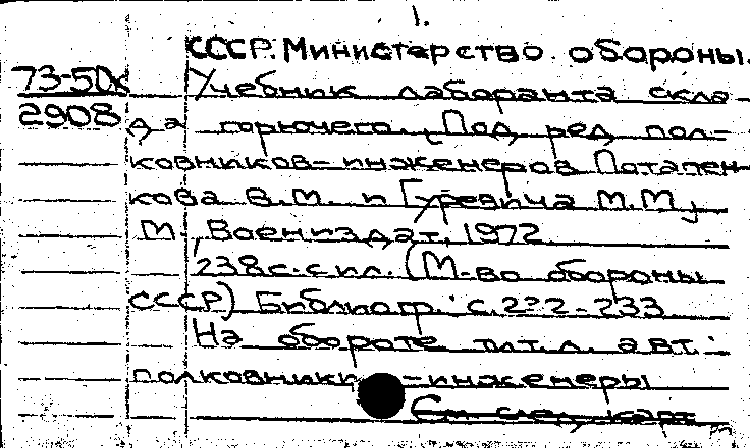 1.
СССР. Министерство обороны.
73-50к Учебник лаборанта скла-
2908 да горючего. Под ред. пол-
ковников-инженеров Потапен-
кова В.М. и Гуревича М.М.,
М., Воениздат, 1972.
238 с. с ил. (М-во обороны
СССР) Библиогр.: с. 232-233
На обороте тит.л. авт.:
полковники-инженеры
См след карт